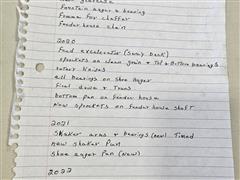 Fountain auger & bearing
Frame for chaffer
Feeder house chain
2020
Feed accelerator (Swap Deck)
Sprockets on clean grain & Tal & Bottom bearings
Rotary Knives
all bearings on shoe auger
Final down & Trans
bottom pan on feeder house
New sprockets on feeder house shaft
2021
Shaker arms & bearings (new) Timed
new shaker Pan
shoe auger Pan (new)
2022